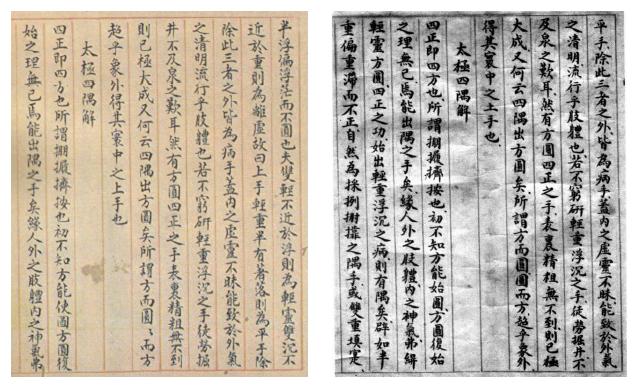 半浮偏浮茫而不圓也夫雙輕不近於浮則為輕靈雙沉不
近於重則為離虛故曰上手輕重半有著落則為平手除
除此三者之外皆為病手蓋內之虛靈不昧能致於外氣
之清明流行乎肢體也若不窮研輕重浮沉之手徒勞掘
井不及泉之歎耳然有方圓四正之手表裏精粗無不到
則已極大成又何云四隅出方圓矣所謂方而圓圓而方
超乎象外得其寰中之上手也
太極四隅解
四正即四方也所謂掤攦擠按也初不知方能使圓方圓復
始之理無已焉能出隅之手矣緣人外之肢體內之神氣弗
平手除此三者之外皆為病手蓋內之虛靈不昧能致於外氣
之清明流行乎肢體也若不窮研輕重浮沉之手徒勞掘井不
及泉之歎耳然有方圓四正之手表裏精粗無不到則已極
大成又何云四隅出方圓矣所謂方而圓圓而方超乎象外
得其寰中之上手也
太極四隅解
四正即四方也所謂掤攦擠按也初不知方能始圓方圓復始
之理無已焉能出隅之手矣緣人外之肢體內之神氣弗緝
輕靈方圓四正之功始出輕重浮沉之病則有隅矣辟如半
重偏重滯而不正自然為採挒肘靠之隅手或雙重填實